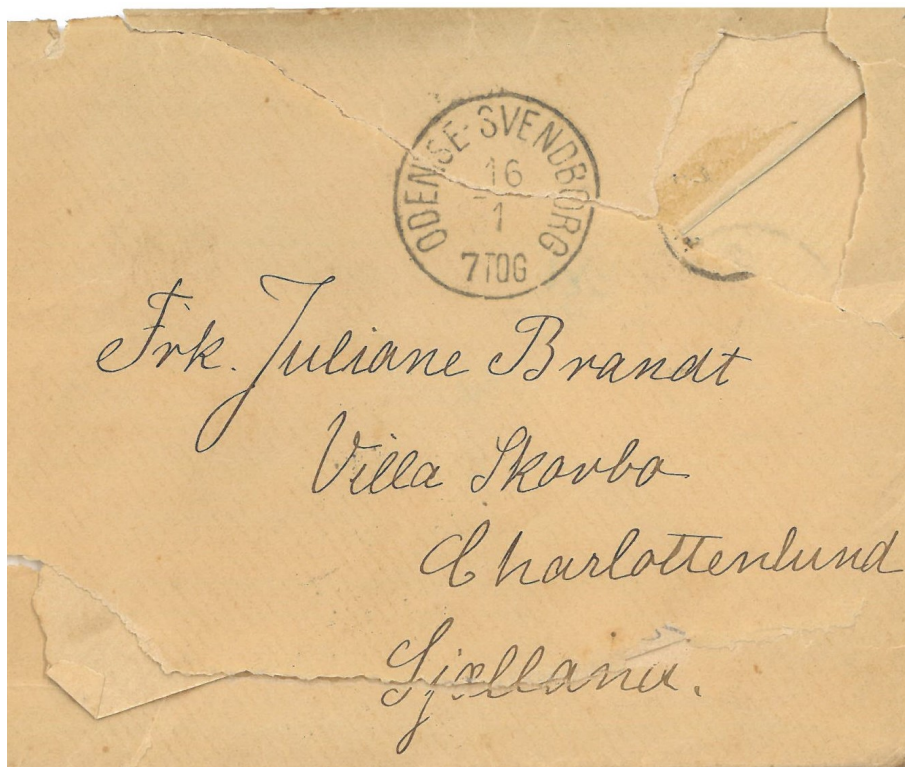 ODENSE-SVENDBORG
16
1
7 TOG
Frk. Juliane Brandt
Villa Skovbo
Charlottenlund
Sjælland.